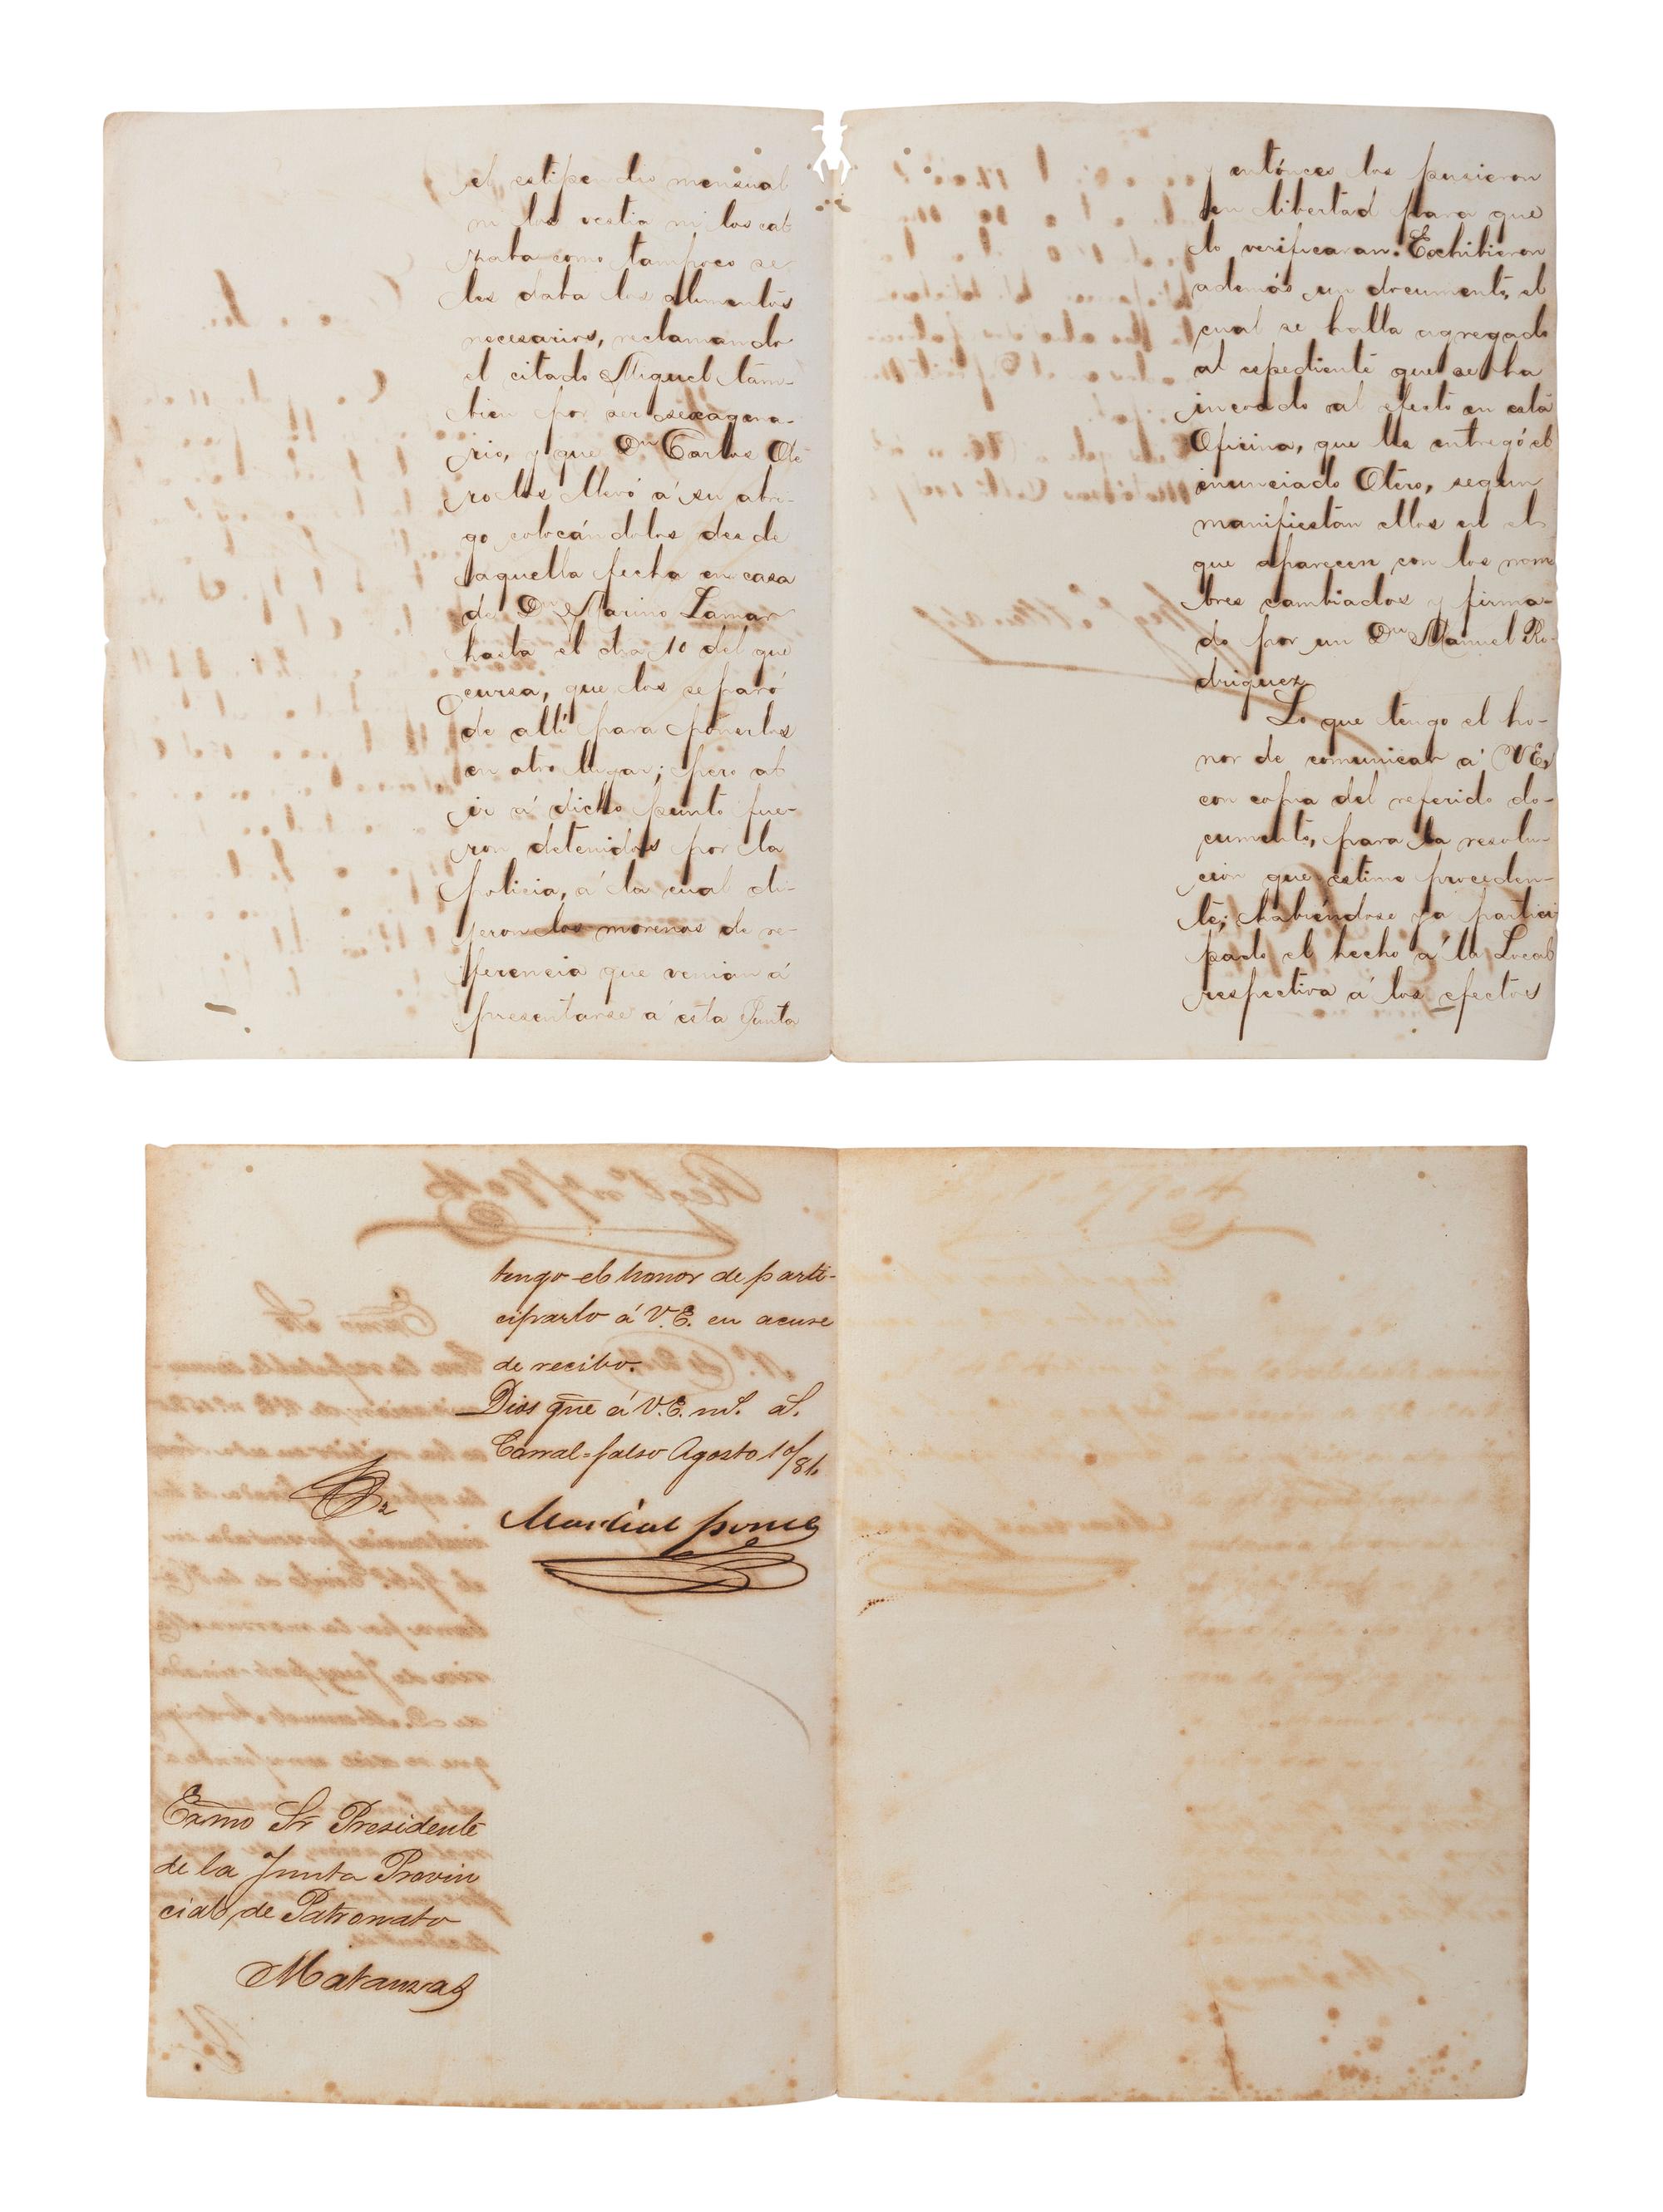 el estipendio mensual
ni los vestia ni los cal
zaba como tampoco se
les daba los alimentos
necesarios, reclamando
el citado Miguel tam-
bien por ser sexagena-
rio, y que Dn Carlos Ote
ro los llevó á su abri-
go colocándolos desde
aquella fecha en casa
de Dn Marino Lamar
hasta el dia 10 del que
cursa, que los separó
de allí para ponerlos
en otro lugar; pero al
ir á dicho punto fue-
ron detenidos por la
policia, á la cual di-
jeron los morenos de re-
ferencia que venian á
presentarse á esta Junta
y entónces los pusieron
en libertad para que
lo verificaran. Exhibieron
además un documento, el
cual se halla agregado
al espediente que se ha
incoado al efecto en esta
Oficina, que lle entregó el
enunciado Otero, segun
manifiestan ellos en el
que aparecen con los nom
bres cambiados y firma-
do por un Dn Manuel Ro-
driguez
Lo que tengo el ho-
nor de comunicar á VE,
con copia del referido do-
cumento, para la resolu-
cion que estime proceden-
te; habiéndose ya partici
pado el hecho á la Local
respectiva á los efectos
tengo el honor de parti-
ciparlo á V.E. en acuse
de recibo.
Dios gue á V.E. ms. as.
Corral-falso Agosto 10/86
Marcial ponce
Exmo Sr Presidente
de la Junta Provin
cial de Patronato
Matanzas